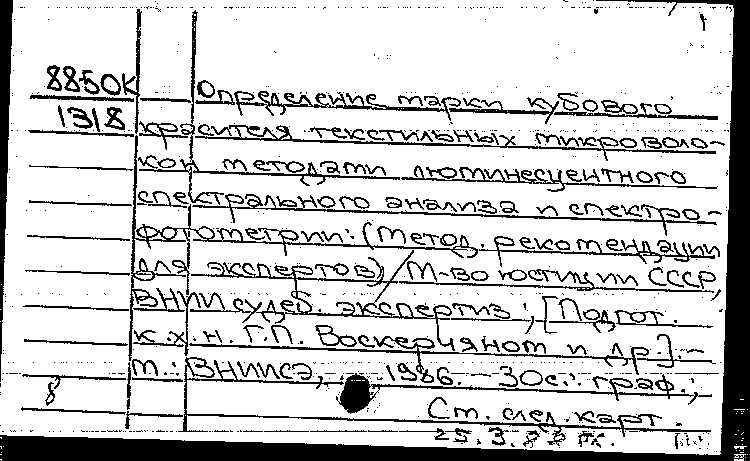 8850К Определение марки кубового
1318 красителя текстильных микроволо-
кон методами люминесцентного
спектрального анализа и спектро-
фотометрии: (Метод. рекомендации
для экспертов) / М-во юстиции СССР,
ВНИИ судеб. экспертиз; [Подгот.
к.х.н. Г.П. Воскерчяном и др.].-
М.: ВНИИСЭ, 1986. - 30с.: граф.;
8 См. след. карт.
25.3.